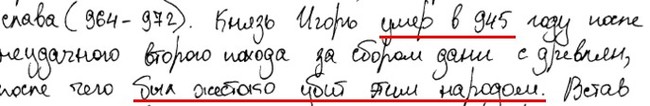 слава (964-972). Князь Игорь умер в 945 году после
неудачного второго похода за сбором дани с древлян,
после чего был жестоко убит этим народом. Встав